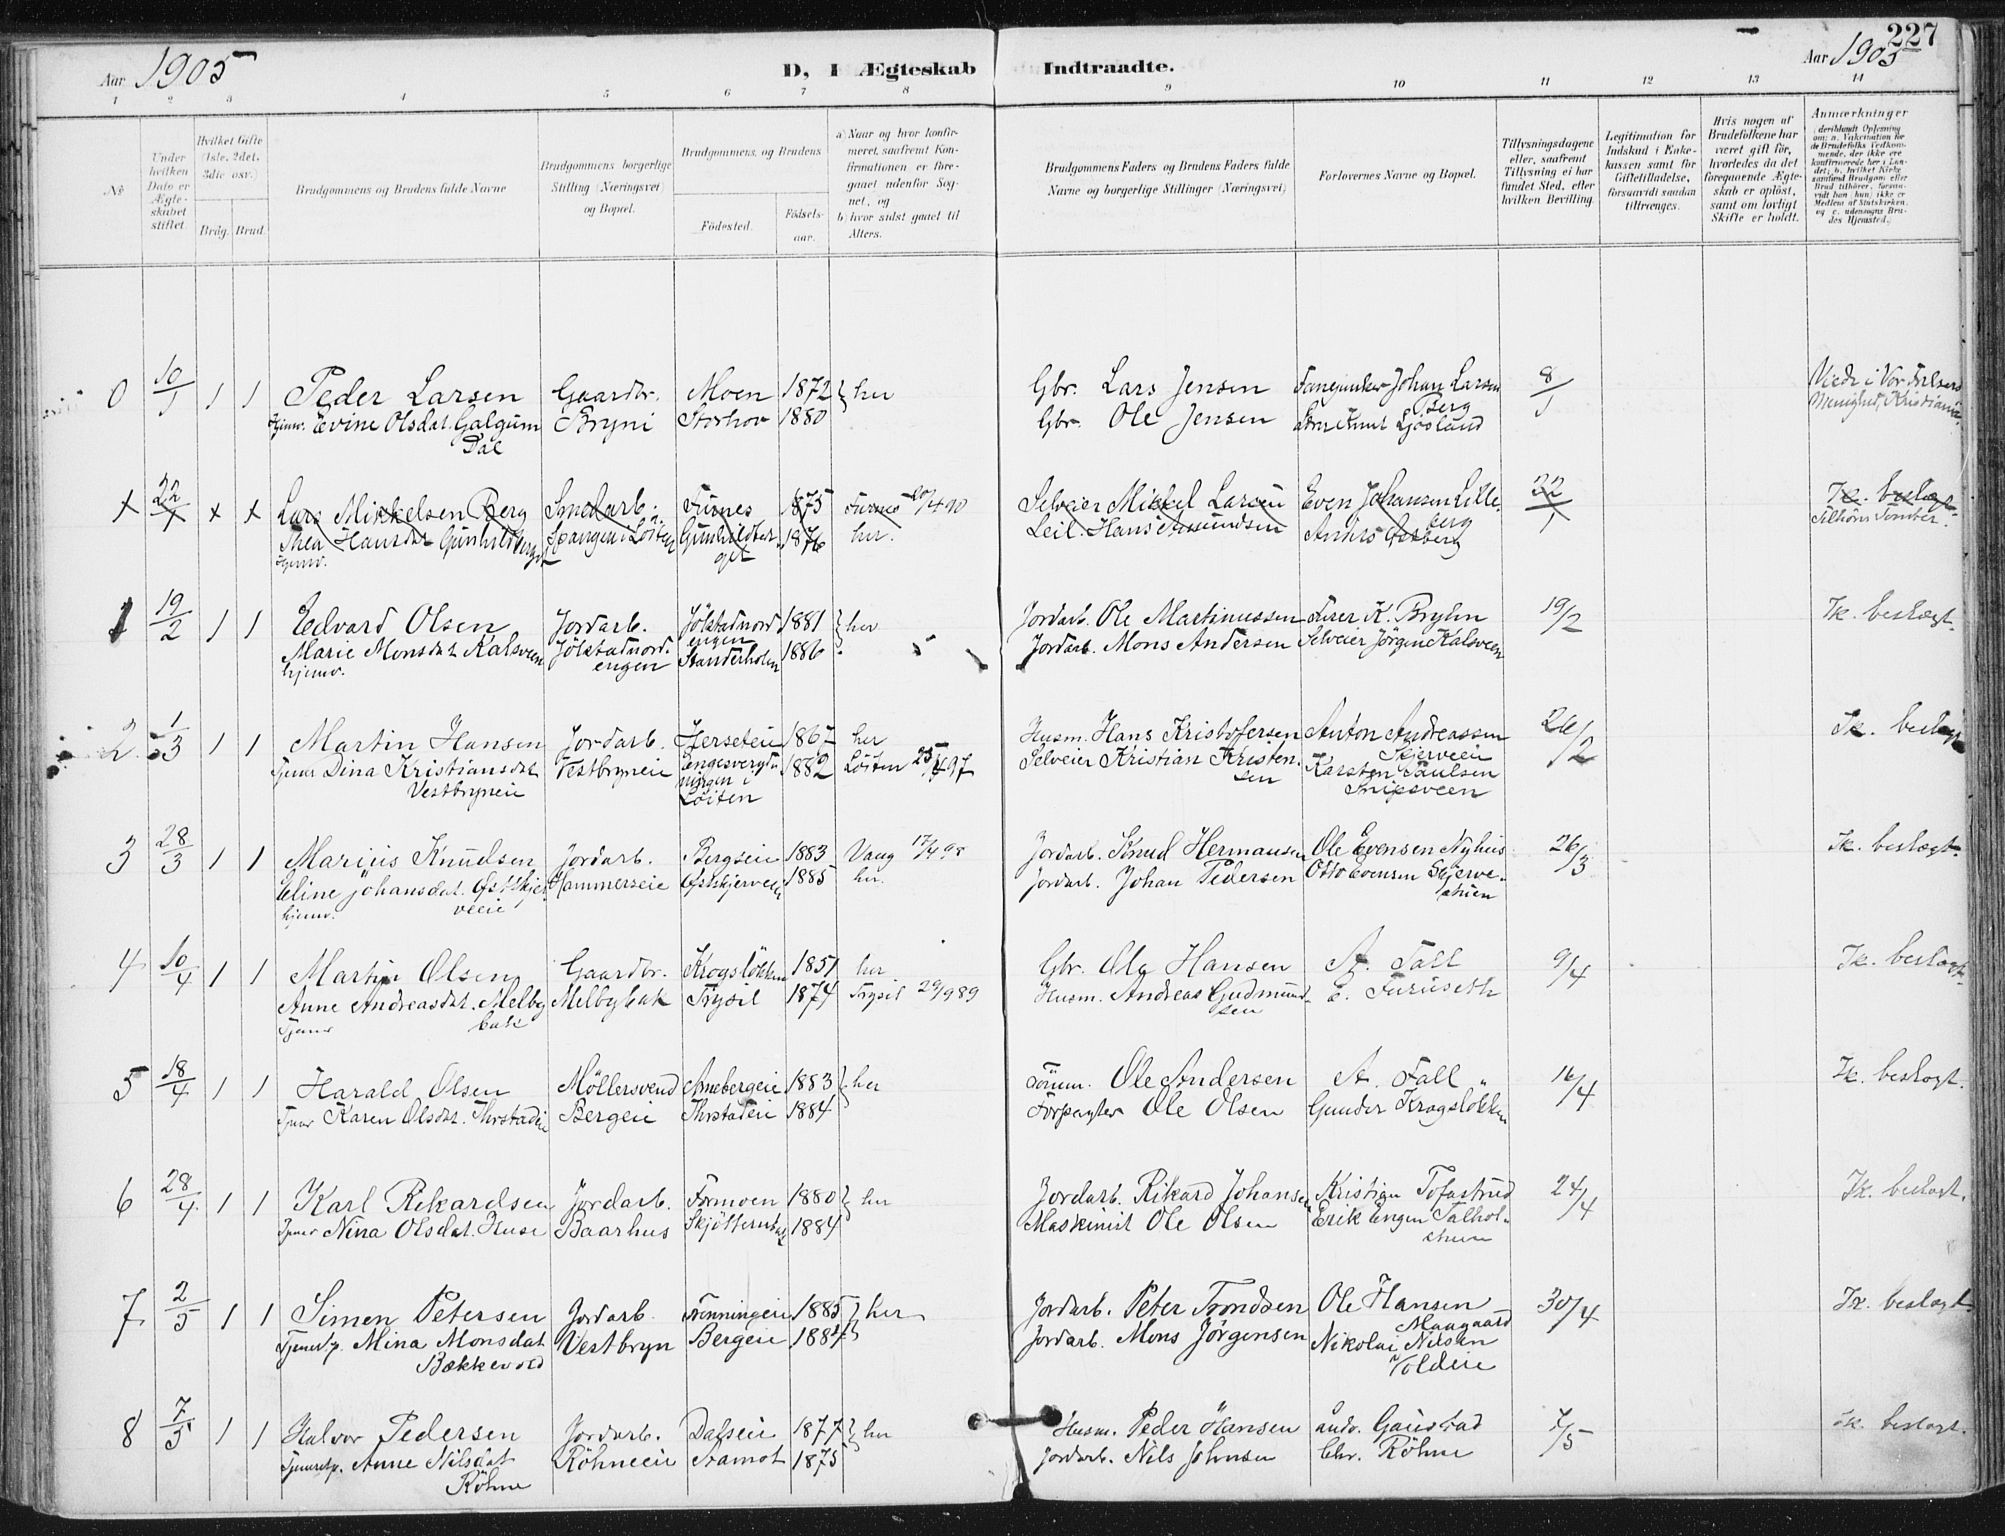 227
Aar 1905
D, I Ægteskab Indtraadte.
Aar 1905
1 2 3 4 5 6 7 8 9 10 11 12 13 14
No
Under hvilken Dato er Ægteskabet stiftet.
Hvilket Gifte (1ste, 2det, 3die osv.)
Brudg. Brud.
Brudgommens og Brudens fulde Navne
Brudgommens borgerlige Stilling (Næringsvei) og Bopæl.
Brudgommens og Brudens
Fødested.
Fødselsaar.
a) Naar og hvor konfirmeret, saafremt Konfirmationen er foregaaet udenfor Sognet, og
b) hvor sidst gaaet til Alters.
Brudgommens Faders og Brudens Faders fulde Navne og borgerlige Stillinger (Næringsvei)
Forlovernes Navne og Bopæl.
Tillysningsdagene eller, saafremt Tillysning ei har fundet Sted, efter hvilken Bevilling.
Legitimation for Indskud i Enkekassen samt for Giftetilladelse, forsaavidt saadan tiltrænges.
Hvis nogen af Brudefolkene har været gift før, hvorledes da det foregaaende Ægteskab er opløst, samt om lovligt Skifte er holdt.
Anmærkninger
0 10/1 1 1 Peder Larsen Gaardbr. Moen 1872 } her Gbr. Lars Jensen Johan Larsen Berg 8/1
Hjemv. Evine Olsdat. Galgum Dal Bryni Storhov 1880 Gbr. Ole Jensen
Viede i Vor Frelsers Menighed, Kristiania.
x 22/x x x Lars Mikkelsen Berg Smedarb. Furnes 1875 Furnes 20/4 90 Selveier Mikkel Larsen Even Johansen Lilleberg 22/1 Ik. beslægt.
Thea Hansdat Gunhildberget hjemv. Spangen i Løiten Gunhildberget 1876 her. Leil. Hans Amundsen Anders Østberg
1 19/2 1 1 Edvard Olsen Jordarb. Jølstadnordengen 1881 } her Jordarb. Ole Martinussen Furer K. Bryhn 19/2 Ik. beslægt.
Marie Monsdat Kalsveen hjemv. Jølstadnordengen Standerholen 1886 Jordarb. Mons Andersen Selveier Jørgen Kalsveen
2 1/3 1 1 Martin Hansen Jordarb. Herseteie 1867 her Husm. Hans Kristofersen Anton Andreassen Skjerveeie 26/2 Ik. beslægt
Tjener Dina Kristiansdat Vestbryneie Vestbryneie i Løiten 1882 Løiten 25/4 97 Selveier Kristian Kristensen Karsten Paulsen Snipsveen
3 28/3 1 1 Marius Knudsen Jordarb. Bergseie 1883 Vang 17/4 98 Jordarb. Knud Hermansen Ole Evensen Nyhus 26/3 Ik. beslægt.
Eline Johansdat. Østskjerveeie hjemv. Hammerseie Østskjerveeie 1885 her. Jordarb. Johan Pedersen Otto Evensen Skjervestuen
4 10/4 1 1 Martin Olsen Gaardbr. Krogsløkken 1851 her Gbr. Ole Hansen A. Fall 9/4 Ik. beslægt.
Anne Andreasdat. Melbybak Tjener Melbybak Trysil 1874 Trysil 29/9 89 Husm. Andreas Gudmundsen E. Furuseth
5 18/4 1 1 Harald Olsen Møllersvend Arnebergeie 1883 } her Tømm. Ole Andersen A. Fall 16/4 Ik. beslægt.
Tjener Karen Olsdat. Thrstadeie Bergeie Thrstadeie 1884 Forpagter Ole Olsen Gunder Krogsløkken
6 28/4 1 1 Karl Rikardsen Jordarb. Formoen 1880 } her Jordarb. Rikard Johansen Kristian Tofastrud 24/4 Ik. beslægt.
Tjener Nina Olsdat. Huse Baarhus 1884 Maskinist Ole Olsen Erik Engen Talholstuen
7 2/5 1 1 Simen Petersen Jordarb. Fønningeie 1885 } her Jordarb. Peter Trondsen Ole Hansen Maagaard 30/4 Ik. beslægt
Tjenestp. Mina Monsdat Bækkevold Vestbryn Bergeie 1884 Jordarb. Mons Jørgensen Nikolai Nilsen Voldeie
8 7/5 1 1 Halvor Pedersen Jordarb. Dalseie 1877 } her Husm. Peder Hansen Andr. Gaustad 7/5 ik. beslægt.
Tjenestp. Anne Nilsdat Røhne Røhneeie Aamot 1875 Jordarb. Nils Johnsen Chr. Røhne